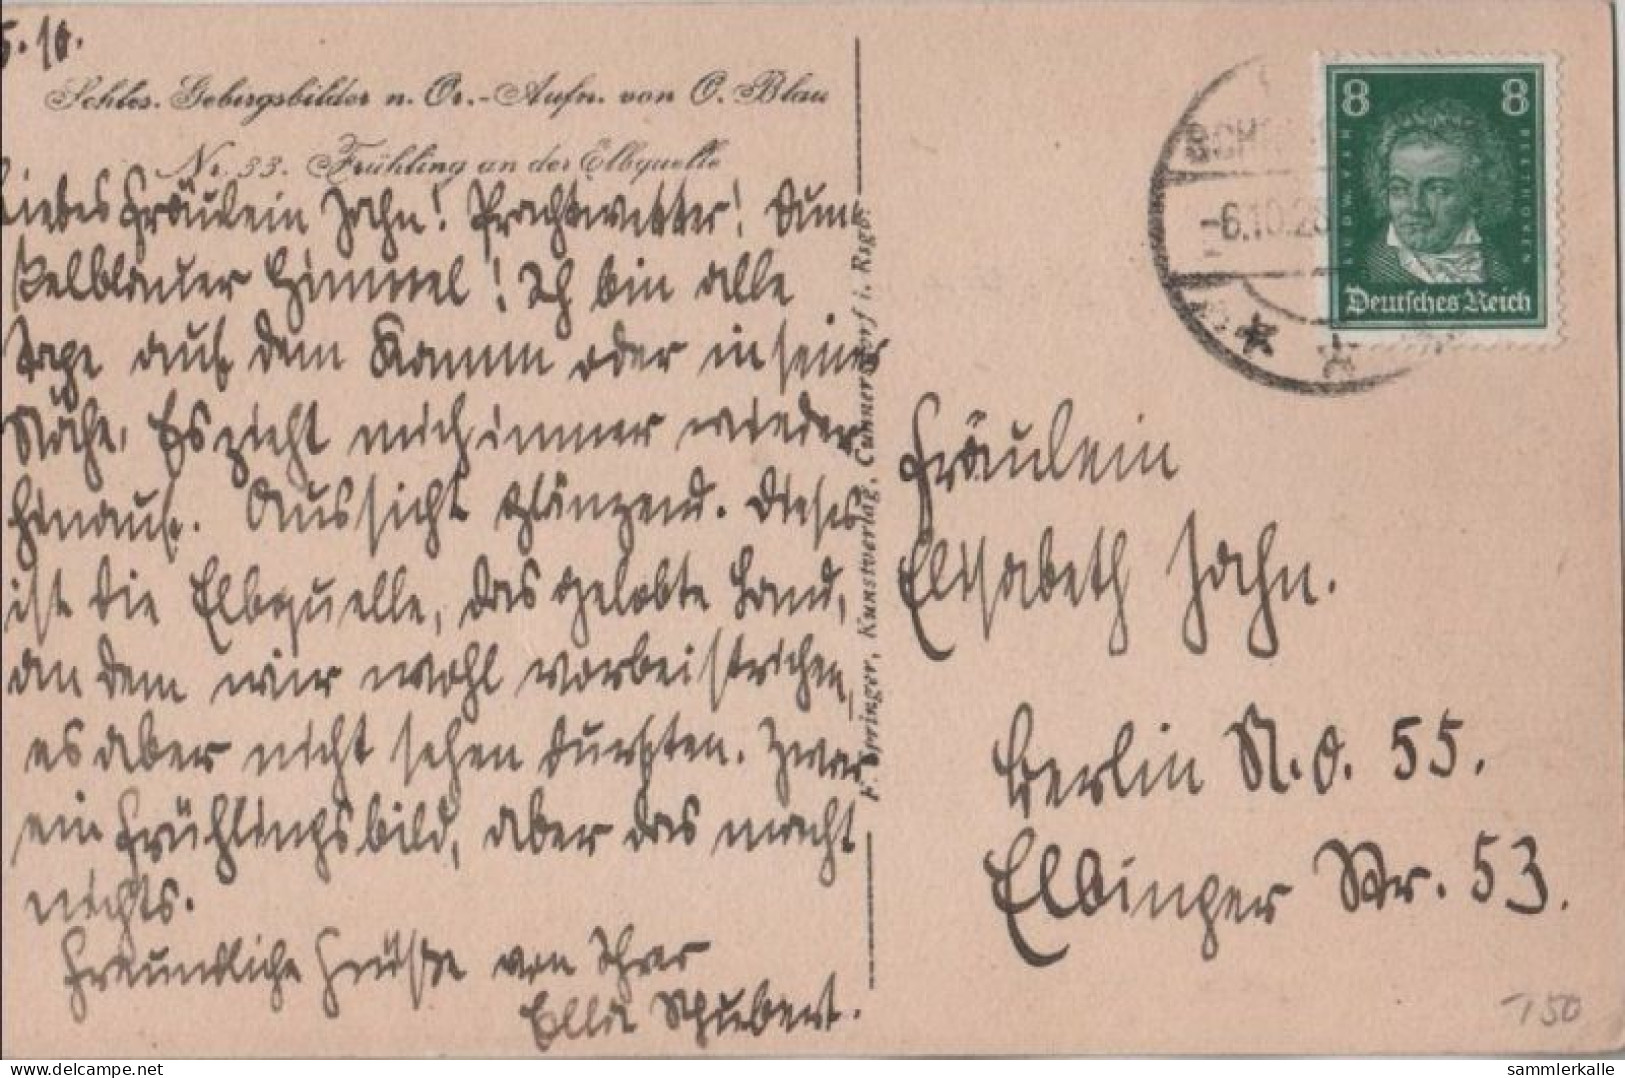 5.10.
Schles. Gebirgsbilder n. Or.-Aufn. von O. Blau
Nr. 33. Frühling an der Elbquelle
Liebes Fräulein Zahn! Prachtwetter! Dun-
kelblauer Himmel! Ich bin alle
Tage auf dem Kamm oder in seiner
Nähe. Es zieht mich immer wieder
hinauf. Aussicht glänzend. Dieses
ist die Elbquelle, das gelobte Land,
an dem wir wohl vorbeistrichen,
es aber nicht sehen durften. Zwar
ein Frühlingsbild, aber das macht
nichts.
Freundliche Grüße von Ihrer
Ella Schubert.
F. Springer, Kunstverlag, Cunnersdorf i. Rsgb.
SCH
-6.10.28
8 8
LUDW. VAN BEETHOVEN
Deutsches Reich
Fräulein
Elisabeth Zahn.
Berlin N.O. 55.
Elbinger Str. 53.
150
hip.com sammlerkalle